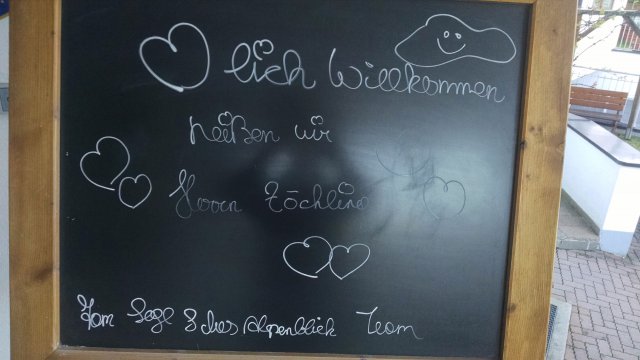 lich Willkommen
heißen wir
Herrn Zöchling
Vom Alpenblick Team